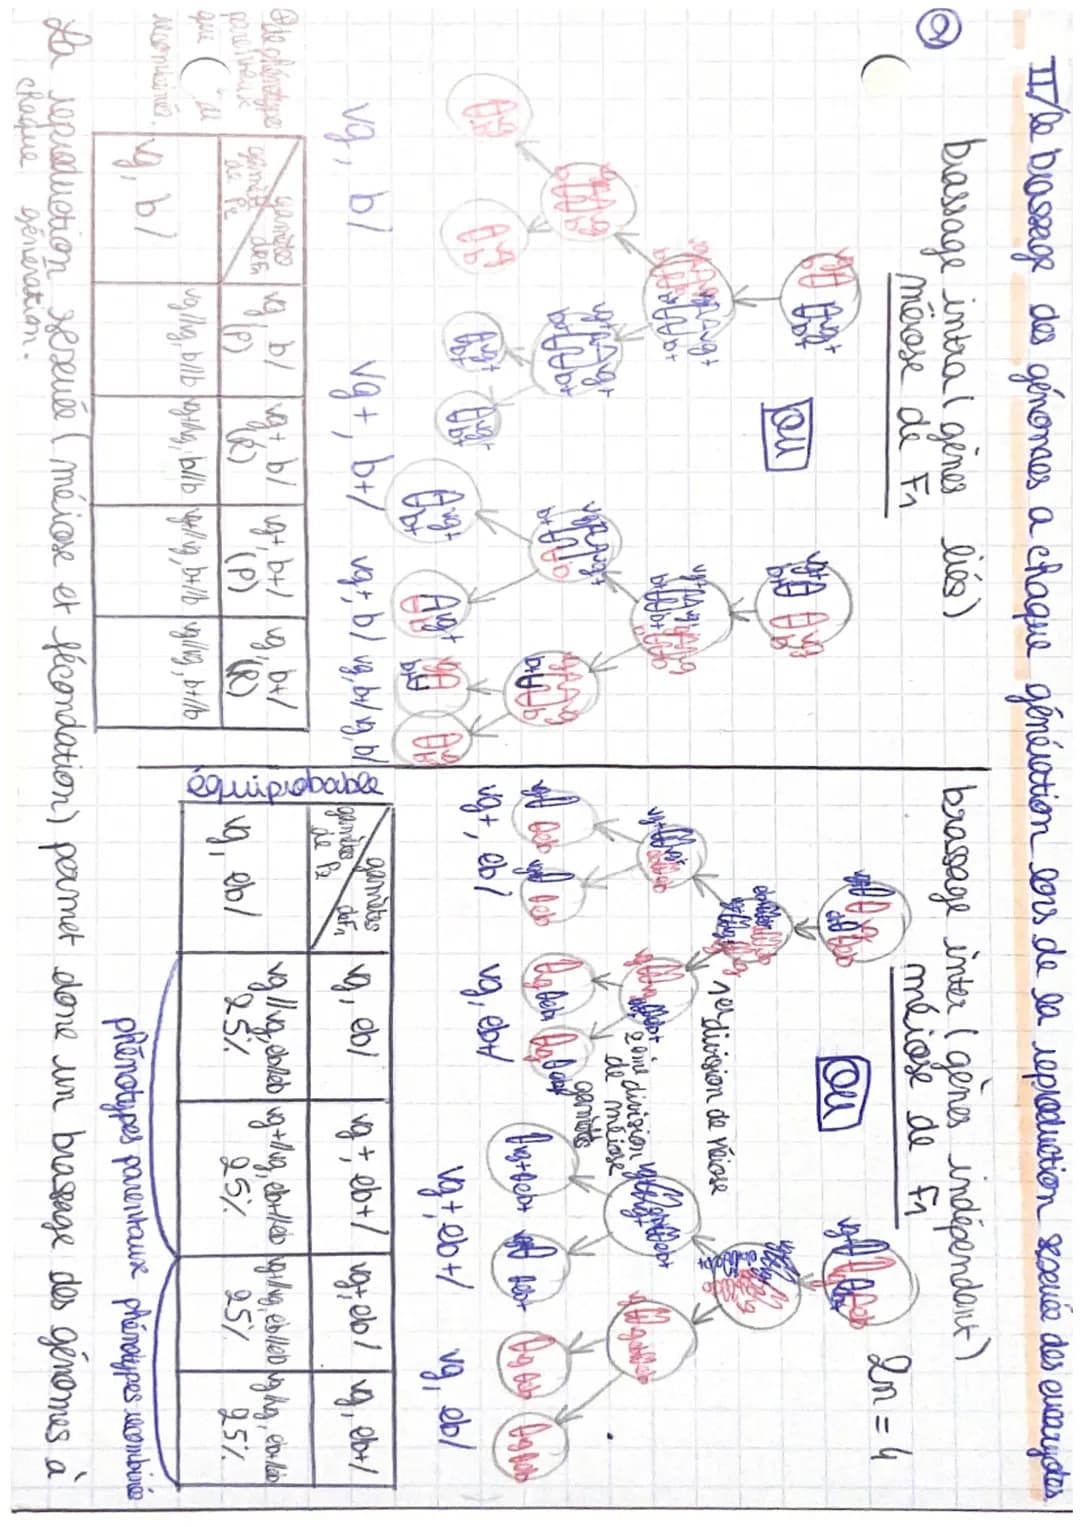 II/Le brassage des génomes a chaque génération lors de la reproduction sexuée des eucaryotes
2)
brassage intra (gènes liés)
méiose de F1
ou
vg, b/
vg+, b+/
vg+, b/
vg, b+/
vg, b/
⊕ de phénotype
parentaux
que
recombinés.
gamètes de F1
gamètes de P2
vg, b/
(P)
vg+ b/
(R)
vg+, b+/
(P)
vg, b+/
(R)
vg, b/
vg//vg, b//b
vg+//vg, b//b
vg+//vg, b+//b
vg//vg, b+//b
brassage inter (gènes indépendant)
méiose de F1
2n = 4
ou
1er division de méiose
2ème division
de méiose
gamètes
vg+, eb/
vg, eb+/
vg+, eb+/
vg, eb/
équiprobable
gamètes de F1
gamètes de P2
vg, eb/
vg+, eb+/
vg+, eb/
vg, eb+/
vg, eb/
vg//vg, eb//eb
25%
vg+//vg, eb+//eb
25%
vg+//vg, eb//eb
25%
vg//vg, eb+//eb
25%
phénotypes parentaux
phénotypes recombinés
La reproduction sexuée (méiose et fécondation) permet donc un brassage des génomes à
chaque génération.